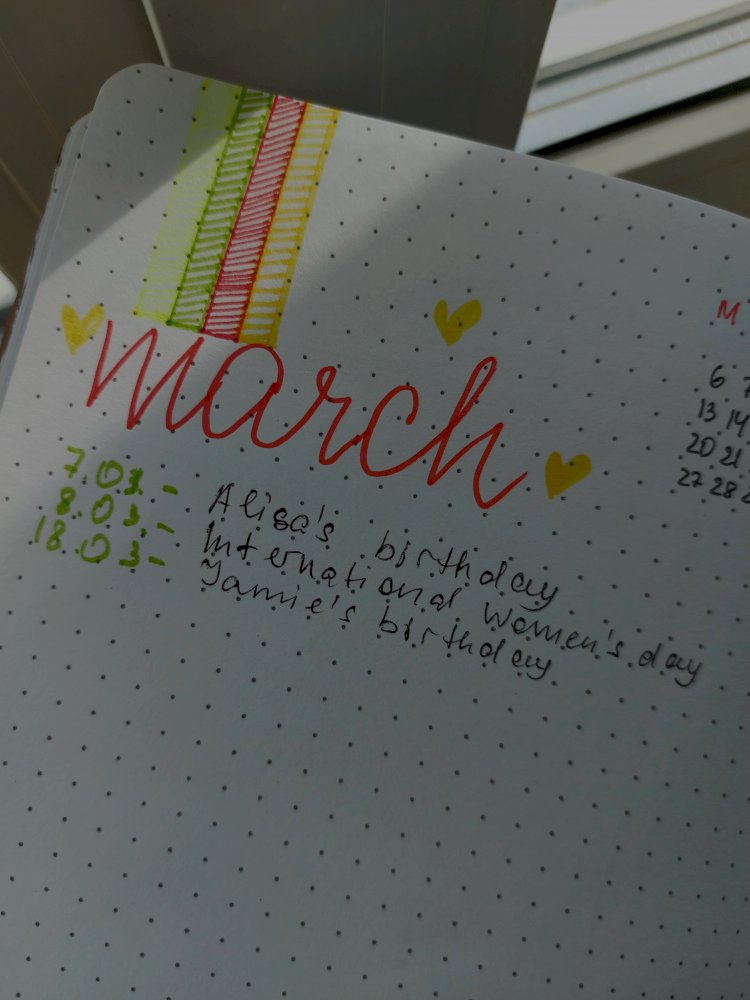 march
7.03. - Alisa's birthday
8.03. - International Women's day
18.03 - Jamie's birthday
M
6 7
13 14
20 21
27 28